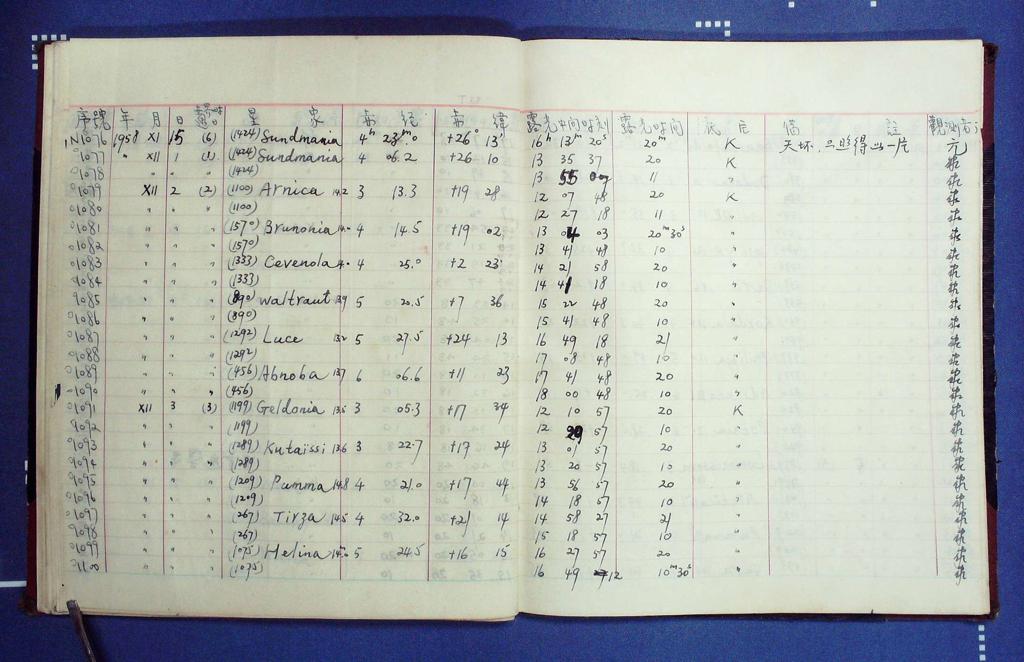 序號 年 月 日 星象 赤經 赤緯 露光中間时刻 露光时间 底片 備註 觀測者
1N1076 1958 XI 15 (6) (1424) Sundmania 4h 28m.0 +26° 13' 16h 13m 20s 20m K 天坏.只照得出一片 元
1077 " XII 1 (1) (1424) Sundmania 4 06.2 +26 10 13 35 37 20 K
1078 " " " (1424) 13 55 07 11 "
1079 XII 2 (2) (1100) Arnica 14.2 3 13.3 +19 28 12 07 48 20 K
1080 " " " (1100) 12 27 18 11 "
1081 " " " (1570) Brunonia 14.0 4 14.5 +19 02 13 04 03 20m30s "
1082 " " " (1570) 13 41 48 10 "
1083 " " " (1333) Cevenola 4 25.0 +2 23 14 21 58 20 "
1084 " " " (1333) 14 41 18 10 "
1085 " " " (890) Waltraut 13.9 5 20.5 +7 36 15 22 48 20 "
1086 " " " (890) 15 41 48 10 "
1087 " " " (1292) Luce 13.2 5 27.5 +24 13 16 49 18 21 "
1088 " " " (1292) 17 08 48 10 "
1089 " " " (456) Abnoba 13.7 6 06.6 +11 23 17 41 48 20 "
1090 " " " (456) 18 00 48 10 "
1091 XII 3 (3) (1199) Geldonia 13.6 3 05.3 +17 34 12 10 57 20 K
1092 " " " (1199) 12 29 57 10 "
1093 " " " (1289) Kutaissi 13.6 3 22.7 +17 24 13 01 57 20 "
1094 " " " (1289) 13 20 57 10 "
1095 " " " (1209) Pumma 14.8 4 21.0 +17 44 13 56 57 20 "
1096 " " " (1209) 14 18 57 10 "
1097 " " " (267) Tirza 14.5 4 32.0 +21 14 14 58 27 21 "
1098 " " " (267) 15 18 57 10 "
1099 " " " (1075) Helina 15.0 5 24.5 +16 15 16 27 57 20 "
1100 " " " (1075) 16 49 12 10m30s "